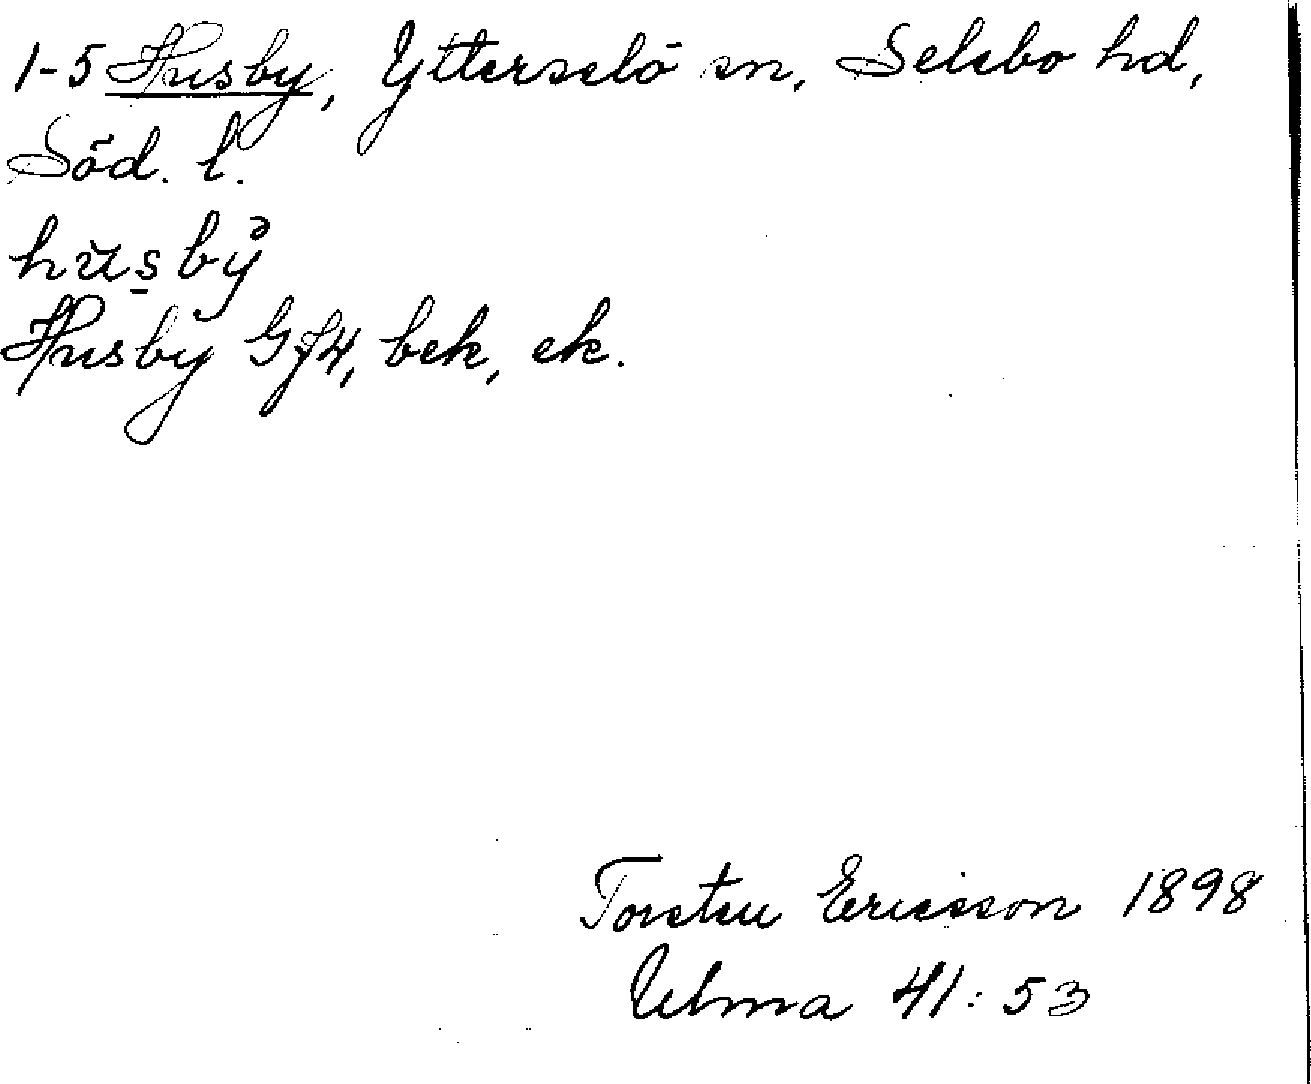 1-5 Husby, Ytterselö sn, Selebo hd,
Söd. l.
Husby Gf4, bek, ek.
Torsten Ericsson 1898
Ulma 41:53